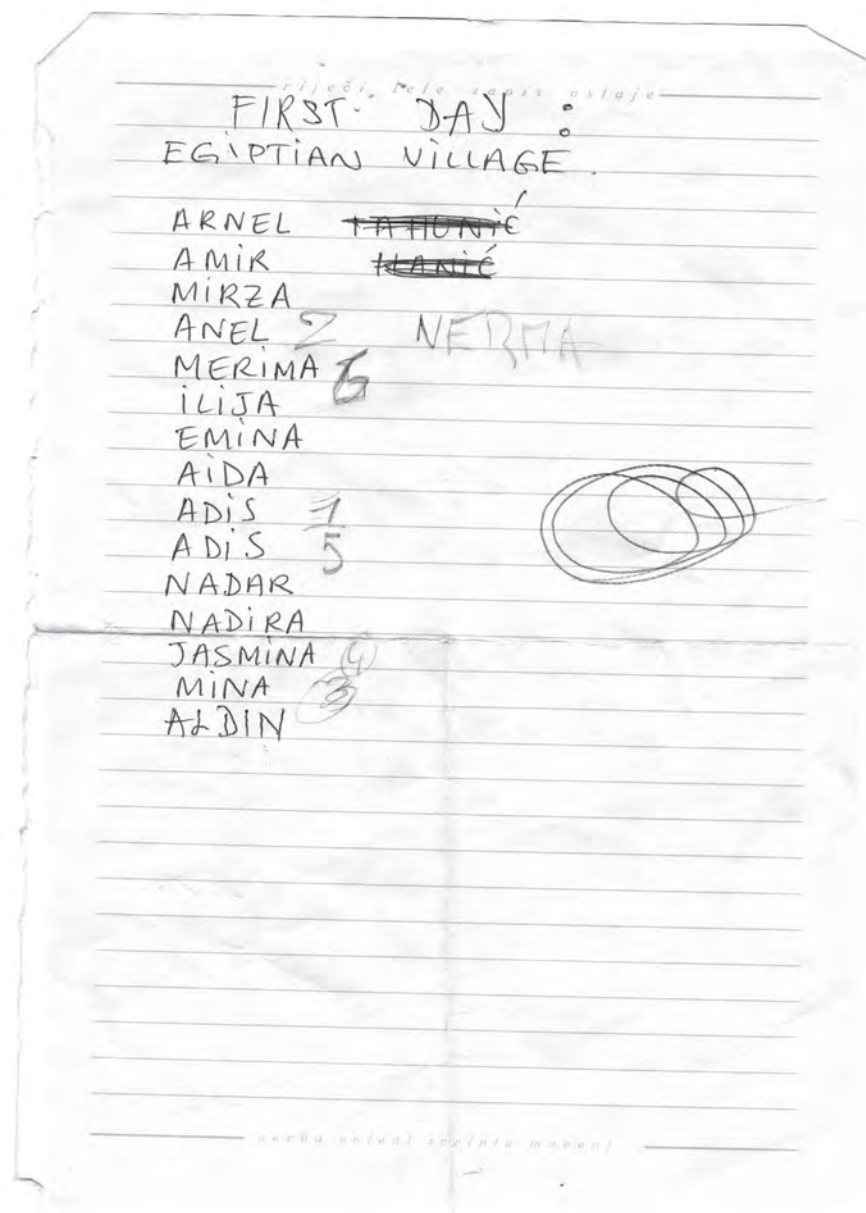 riječi lete zapis ostaje
FIRST DAY :
EGIPTIAN VILLAGE.
ARNEL
AMIR HANIĆ
MIRZA
ANEL 2 NERMA
MERIMA 6
ILIJA
EMINA
AIDA
ADIS 1
ADIS 5
NADAR
NADIRA
JASMINA 4
MINA 3
ALDIN
verba volent scripta manent